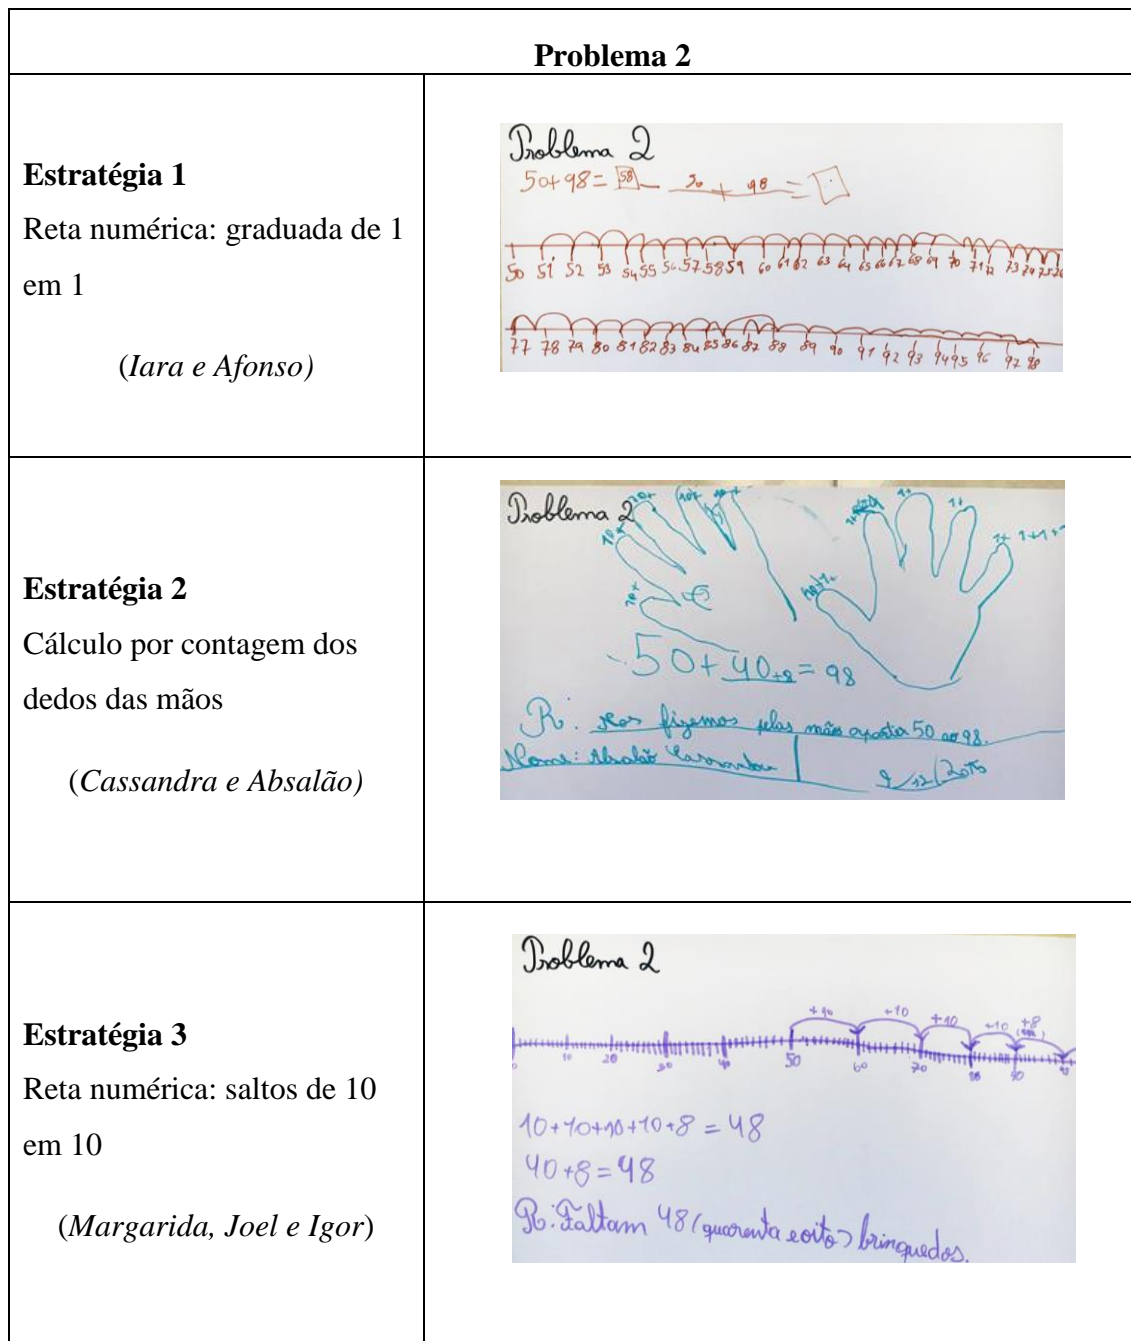 Problema 2
Estratégia 1
Reta numérica: graduada de 1
em 1
(Iara e Afonso)
Problema 2
50+98= 58 50 + 98 =
50 51 52 53 54 55 56 57 58 59 60 61 62 63 64 65 66 67 68 69 70 71 72 73 74 75 76
77 78 79 80 81 82 83 84 85 86 87 88 89 90 91 92 93 94 95 96 97 98
Estratégia 2
Cálculo por contagem dos
dedos das mãos
(Cassandra e Absalão)
Problema 2
10+ 10+ 10+ 10+ 10+ 1+ 1+ 1+ 1+1+
50+40+8=98
R: Nos fizemos pelas mãos apartir 50 ao 98.
Nome: Absalão
9/12/2015
Estratégia 3
Reta numérica: saltos de 10
em 10
(Margarida, Joel e Igor)
Problema 2
+10 +10 +10 +10 +8
0 10 20 30 40 50 60 70 80 90 98
10+10+10+10+8=48
40+8=48
R: Faltam 48 (quarenta e oito) brinquedos.